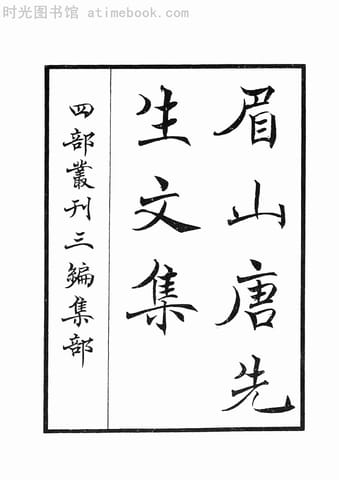 时光图书馆 - atimebook.com
眉山唐先
生文集
四部叢刊三編集部